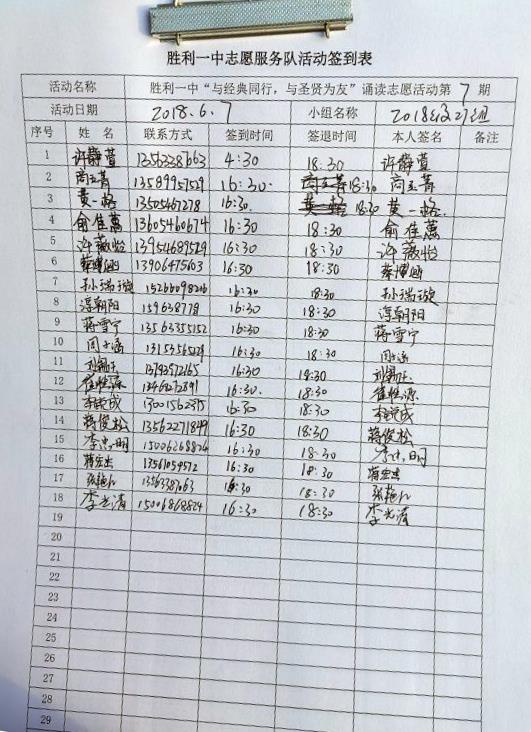 胜利一中志愿服务队活动签到表
活动名称 胜利一中“与经典同行，与圣贤为友”诵读志愿活动第 7 期
活动日期 2018.6.7 小组名称 2018级
序号 姓 名 联系方式 签到时间 签退时间 本人签名 备注
1 许静萱 4:30 18:30 许静萱
2 商玉菁 13589957529 16:30. 18:30 商玉菁
3 黄一 13505467278 16:30. 18:30 黄一
4 俞佳蕙 13605460674 16:30 18:30 俞佳蕙
5 许薇怡 13954689529 16:30 18:30 许薇怡
6 蔡博涵 13906475603 16:30 18:30 蔡博涵
7 孙瑞璇 16:30 18:30 孙瑞璇
8 淳朝阳 16:30 18:30 淳朝阳
9 蒋雪宁 13563355152 16:30 18:30 蒋雪宁
10 16:30 18:30
11 16:30 18:30
12 16:30. 18:30
13 16:30 18:30
14 蒋俊松 13562271849 16:30 18:30 蒋俊松
15 李忠明 16:30 18:30 李忠明
16 蒋宏杰 16:30 18:30 蒋宏杰
17 16:30 18:30
18 李光清 15006868824 16:30 18:30 李光清
19
20
21
22
23
24
25
26
27
28
29